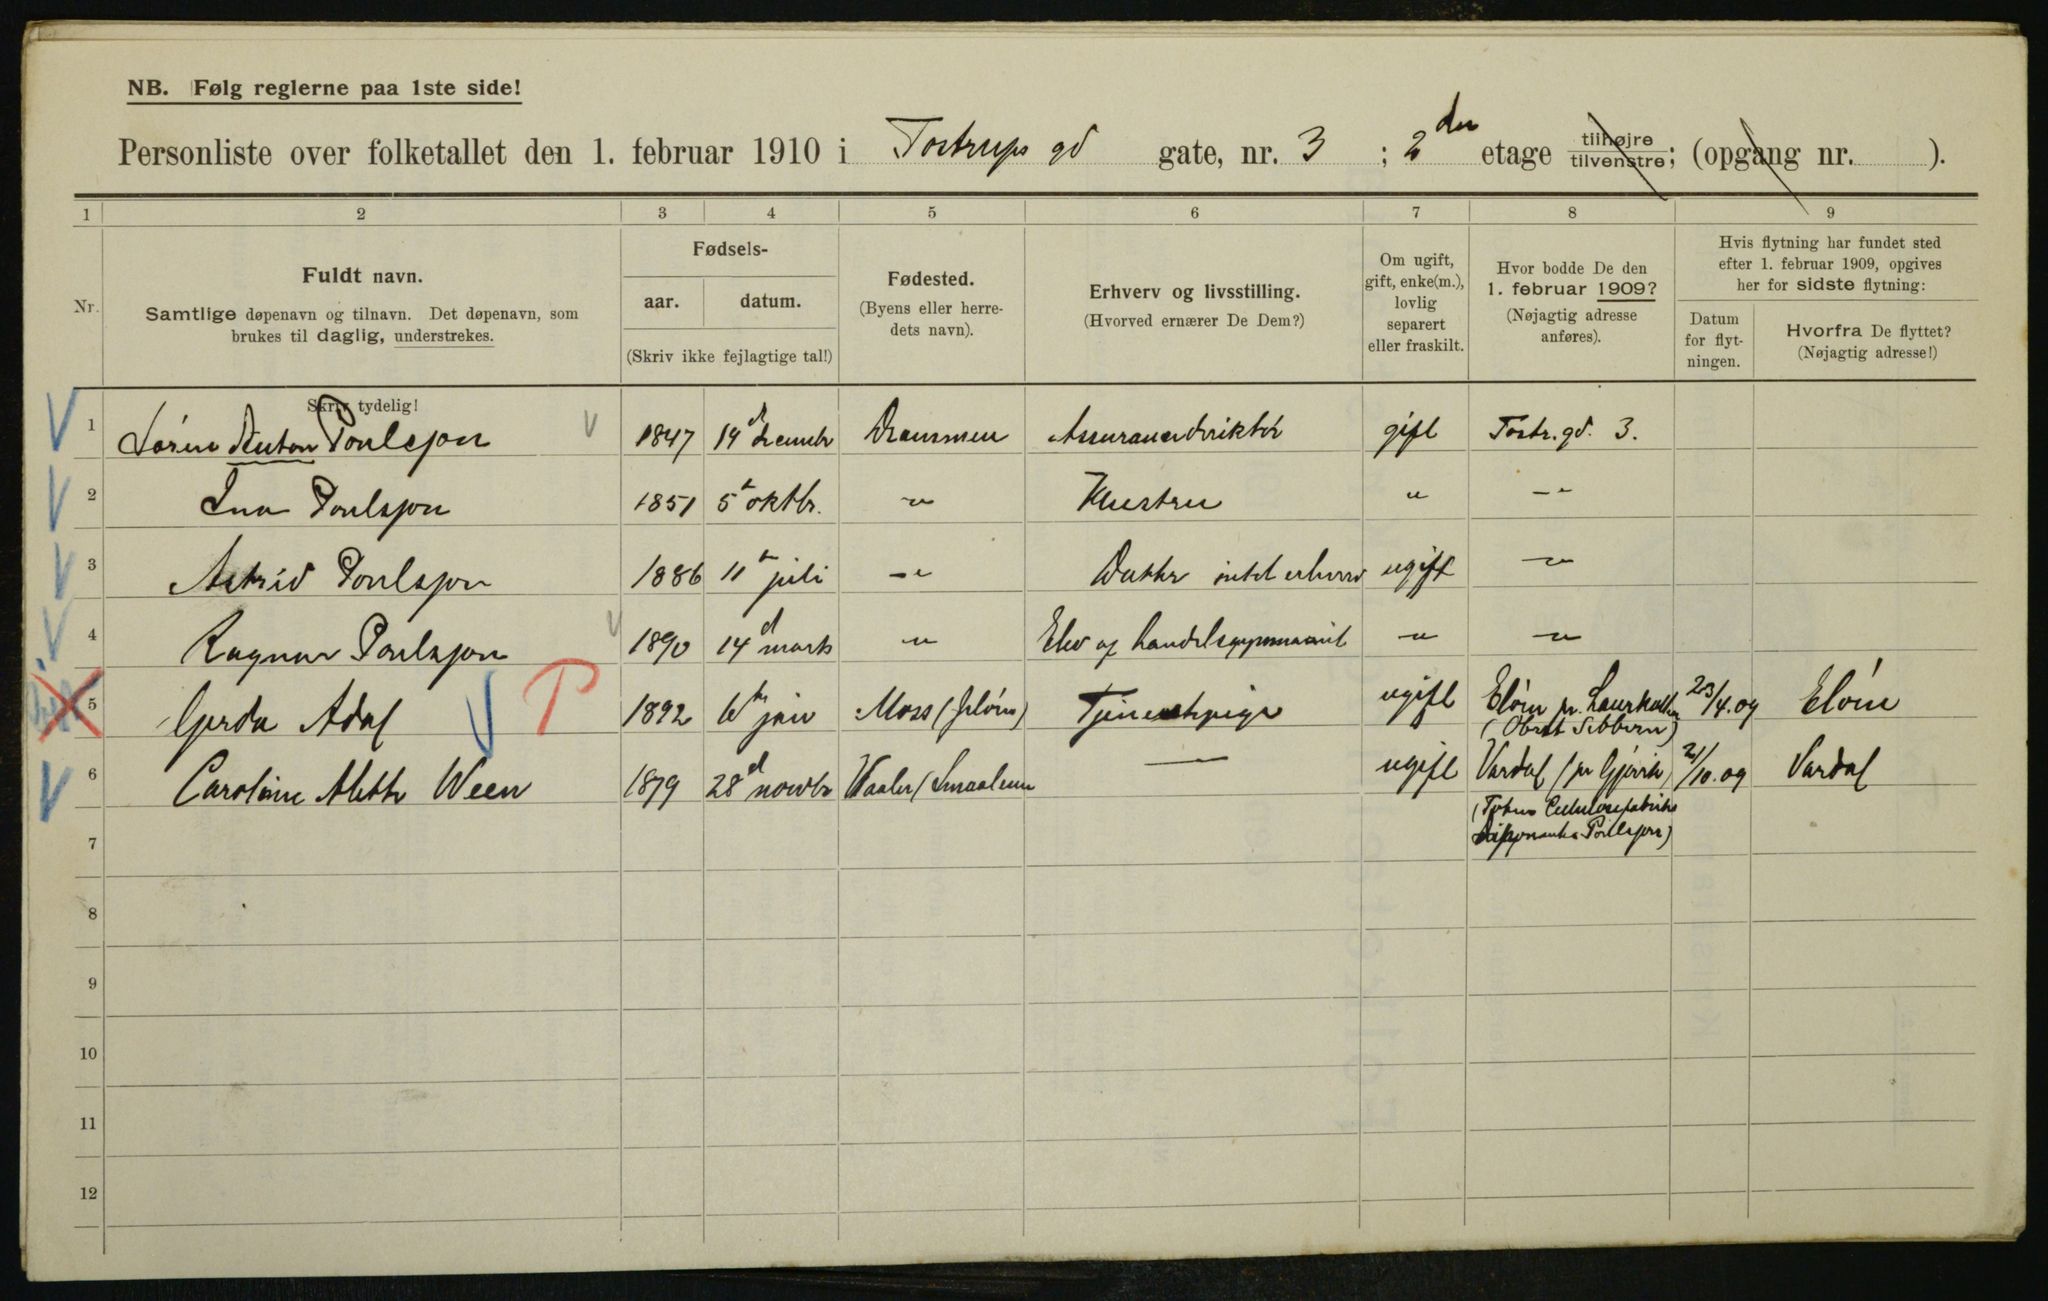 NB. Følg reglerne paa 1ste side!
Personliste over folketallet den 1. februar 1910 i Tostrups gd gate, nr. 3 ; 2den etage tilhøjre tilvenstre; (opgang nr. ).
1 2 3 4 5 6 7 8 9
Nr.
Fuldt navn.
Samtlige døpenavn og tilnavn. Det døpenavn, som
brukes til daglig, understrekes.
Skriv tydelig!
Fødsels-
aar. datum.
(Skriv ikke fejlagtige tal!)
Fødested.
(Byens eller herre-
dets navn).
Erhverv og livsstilling.
(Hvorved ernærer De Dem?)
Om ugift,
gift, enke(m.),
lovlig
separert
eller fraskilt.
Hvor bodde De den
1. februar 1909?
(Nøjagtig adresse
anføres).
Hvis flytning har fundet sted
efter 1. februar 1909, opgives
her for sidste flytning:
Datum
for flyt-
ningen.
Hvorfra De flyttet?
(Nøjagtig adresse!)
1 Søren Anton Poulsson 1847 14d decembr Drammen Assurancedirektør gift Tostr. gd. 3.
2 Ina Poulsson 1851 5t oktbr. -"- Hustru " -"-
3 Astrid Poulsson 1886 11t juli -"- Datter intet erhverv ugift -"-
4 Ragnar Poulsson 1890 14d marts -"- Elev af handelsgymnasiet -"- -"-
5 Gerda Adal P 1892 6t jan Moss (Jeløen) Tjenestepige ugift Eløen pr. Laurkullen 23/4.09 Eløen
(Oberst Sibbern)
6 Caroline Alette Ween 1879 28d novbr Vaaler (Smaalenene — ugift Vardal (pr Gjøvik) 21/10.09 Vardal
(Toten Cellulosefabrik
Disponent Poulsson)
7
8
9
10
11
12